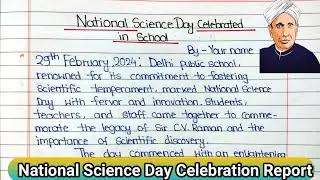 National Science Day Celebrated
in School
By - Your name
29th February 2024: Delhi public school,
renowned for its commitment to fostering
scientific temperament, marked National Science
Day with fervor and innovation. Students,
teachers, and staff came together to comme-
morate the legacy of Sir C.V. Raman and the
importance of scientific discovery.
The day commenced with an enlightening
National Science Day Celebration Report